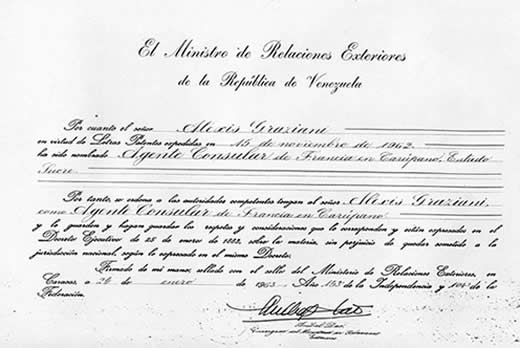 El Ministro de Relaciones Exteriores
de la República de Venezuela
Por cuanto el señor Alexis Graziani
en virtud de Letras Patentes expedidas en 15 de noviembre de 1962
ha sido nombrado Agente Consular de Francia en Carúpano, Estado
Sucre
Por tanto, se ordena a las autoridades competentes tengan al señor Alexis Graziani,
como Agente Consular de Francia en Carúpano
y le guarden y hagan guardar los respetos y consideraciones que le corresponden y están expresados en el
Decreto Ejecutivo de 25 de enero de 1883, sobre la materia, sin perjuicio de quedar sometido a la
jurisdicción nacional, según lo expresado en el mismo Decreto.
Firmado de mi mano, sellado con el sello del Ministerio de Relaciones Exteriores, en
Caracas, a 26 de enero de 1963 Año 153 de la Independencia y 104 de la
Federación.